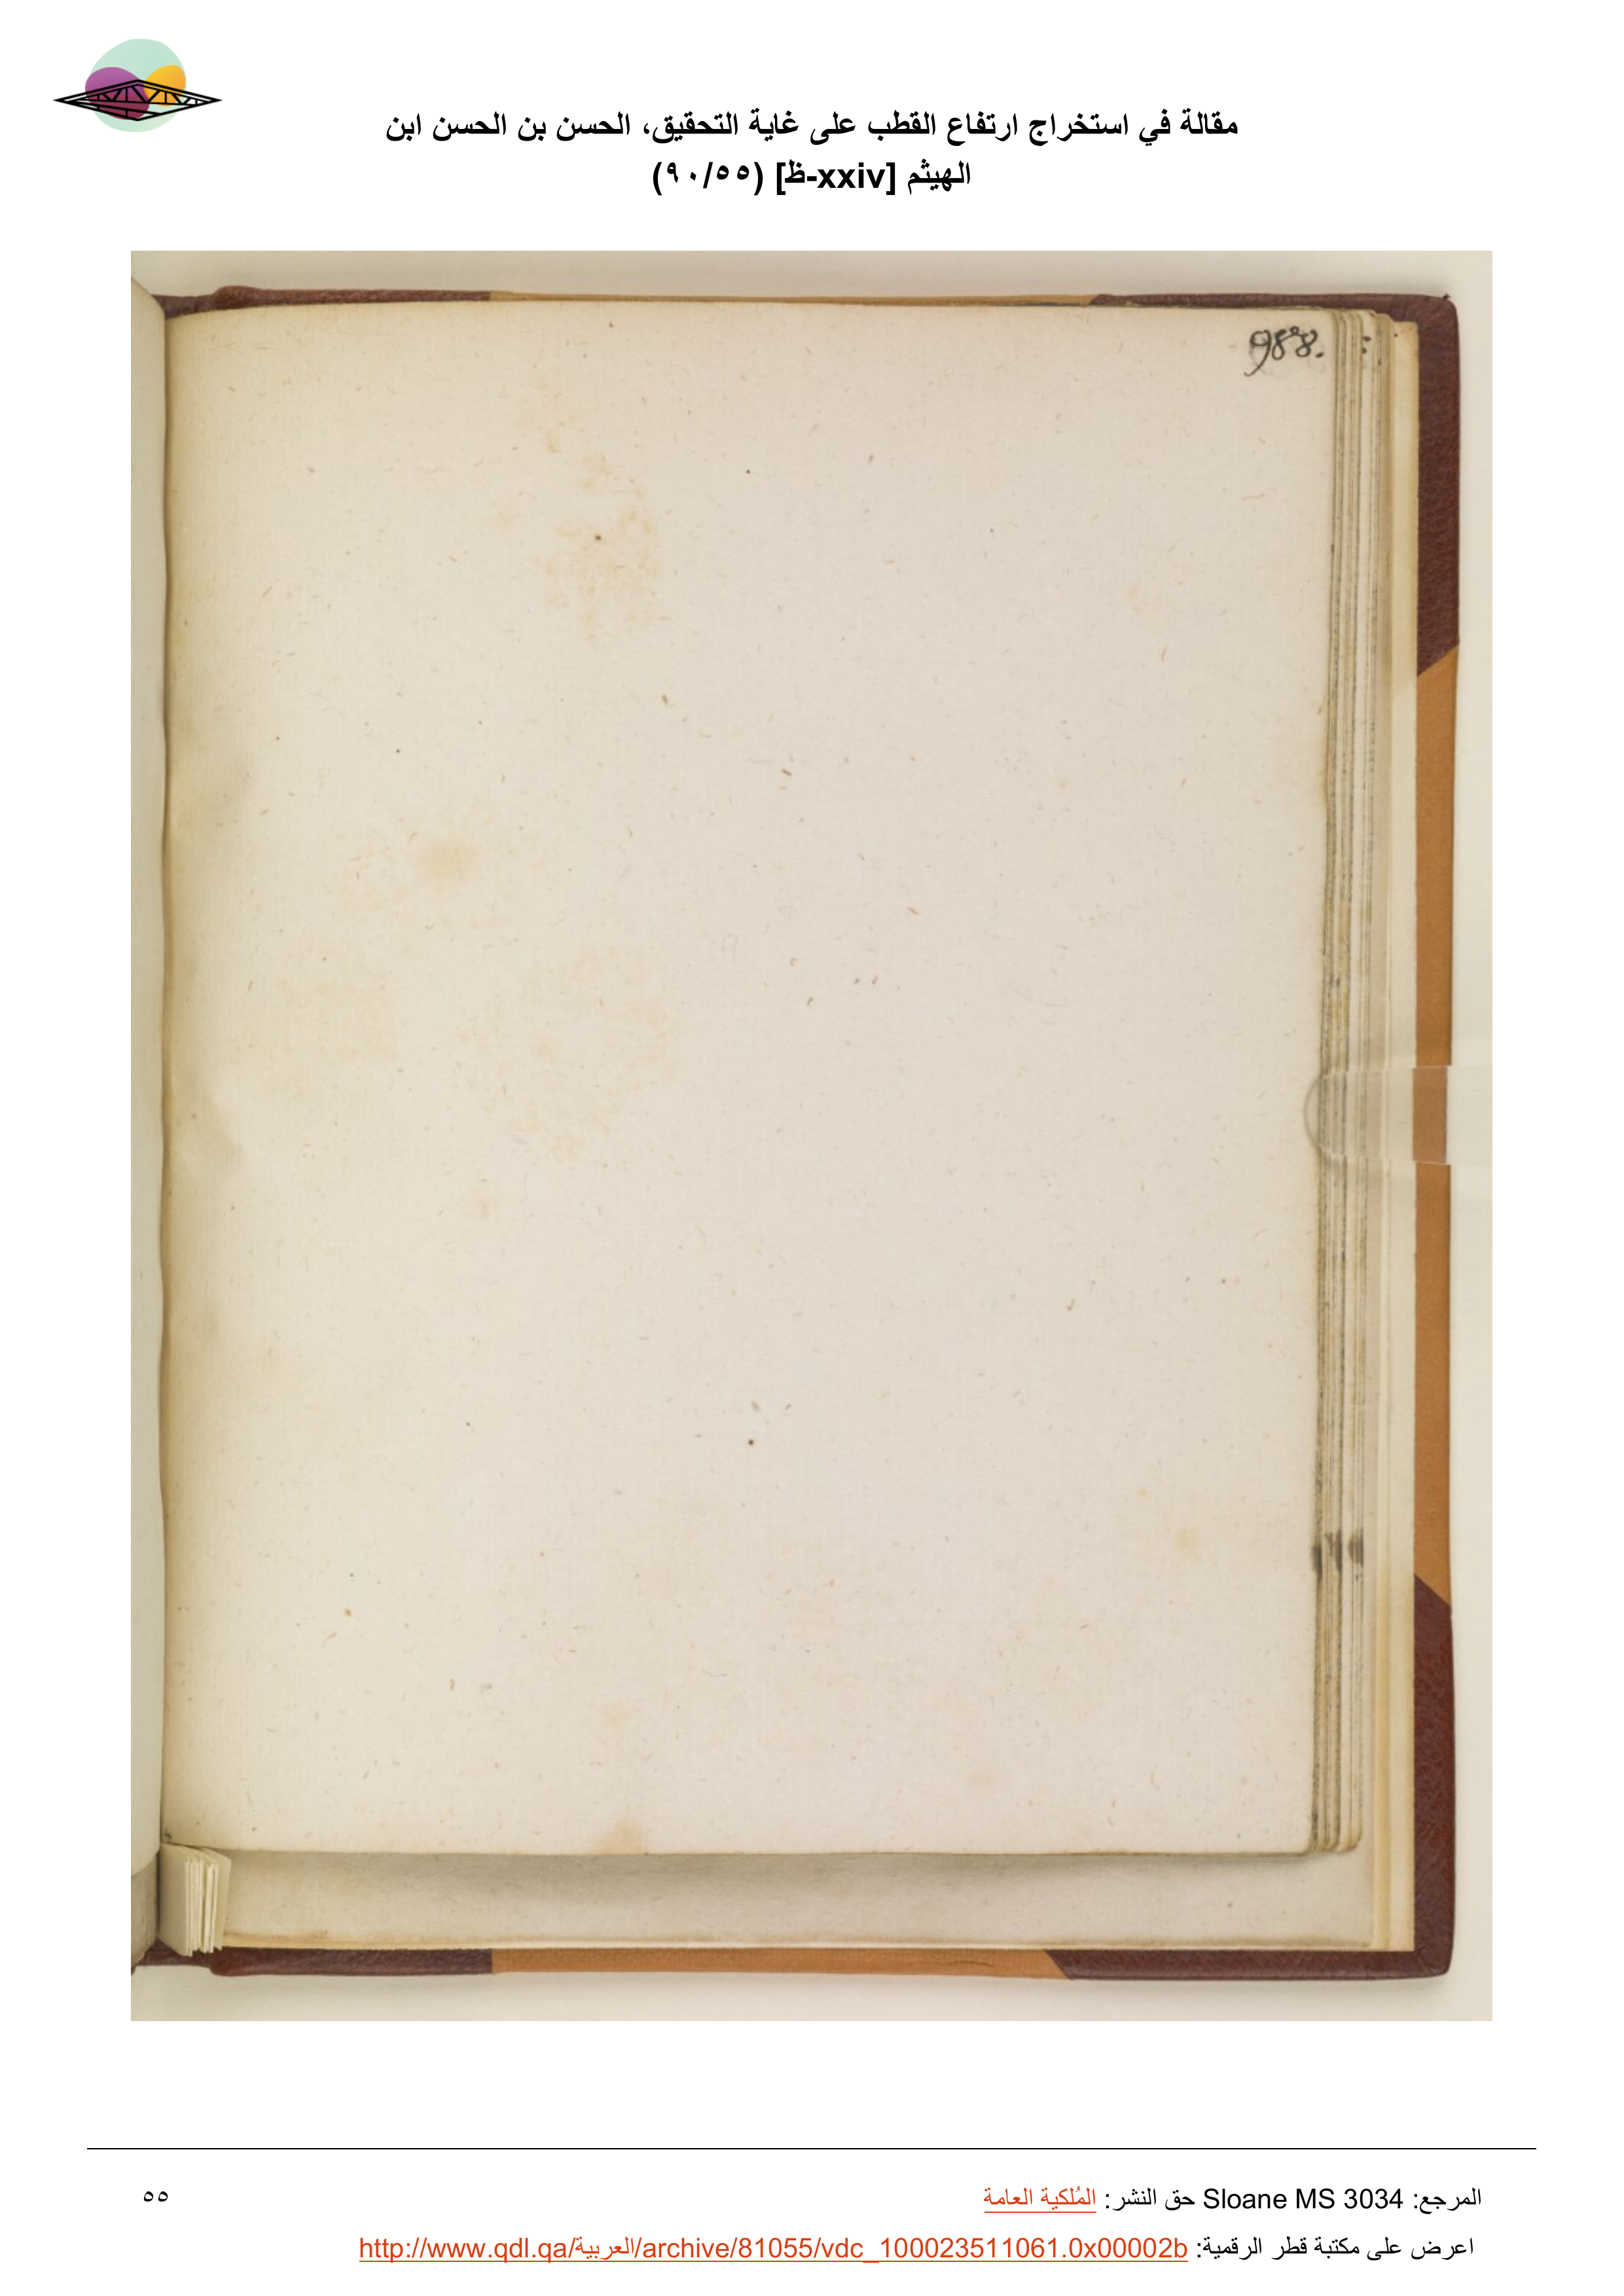 مقالة في استخراج ارتفاع القطب على غاية التحقيق، الحسن بن الحسن ابن
الهيثم [xxiv-ظ] (٩٠/٥٥)
988.
المرجع: Sloane MS 3034 حق النشر: المُلكية العامة
٥٥
اعرض على مكتبة قطر الرقمية: http://www.qdl.qa/العربية/archive/81055/vdc_100023511061.0x00002b